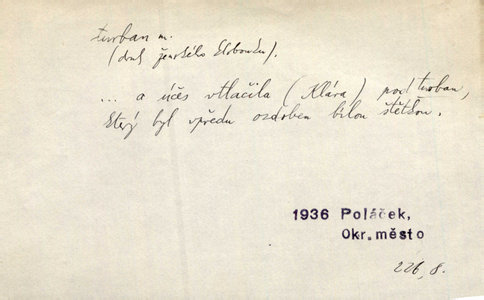 turban m.
(druh ženského klobouku).
... a účes vtlačila (Klára) pod turban,
který byl vpředu ozdoben bílou štětkou.
1936 Poláček,
Okr.město
226, 8.